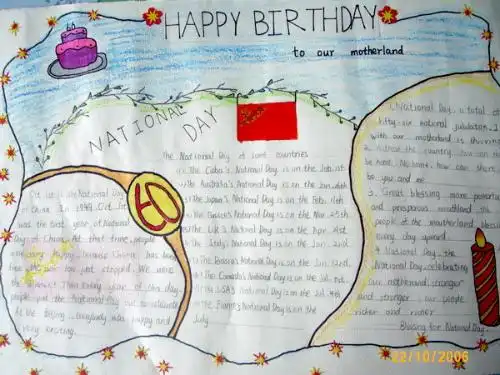 HAPPY BIRTHDAY
to our motherland
NATIONAL
DAY
60
The National Day of some countries
The Cuba's National Day is on the Jan. 1st
The Australia's National Day is on the Jan. 26th
The Japan's National Day is on the Feb. 11th
The Greece's National Day is on the Mar. 25th
The National Day is on the Apr. 21st
The Italy's National Day is on the Jun. 2nd
The Russia's National Day is on the Jun. 12nd
The Canada's National Day is on the Jul. 1st
The USA's National Day is on the Jul. 4th
The France's National Day is on the
July
Oct 1st is the National Day
in China. In 1949, Oct 1st
was the first year of National
Day in China. At that time, people
were happy, because China has been
We were
every year of this day,
people put the National Day
At the Beijing, everybody was happy and
very exciting.
1. National Day, a total of
fifty-six national jubilation
with our motherland is
2. Without the country, how can
be home, No home, how can there
be you and me
3. Great blessing more
and prosperous motherland, the
people of the motherland blessing
every day upward.
4. National Day, the
National Day, celebrating
our motherland stronger
and stronger, our people
richer and richer.
Blessing for National Day.
22/10/2006